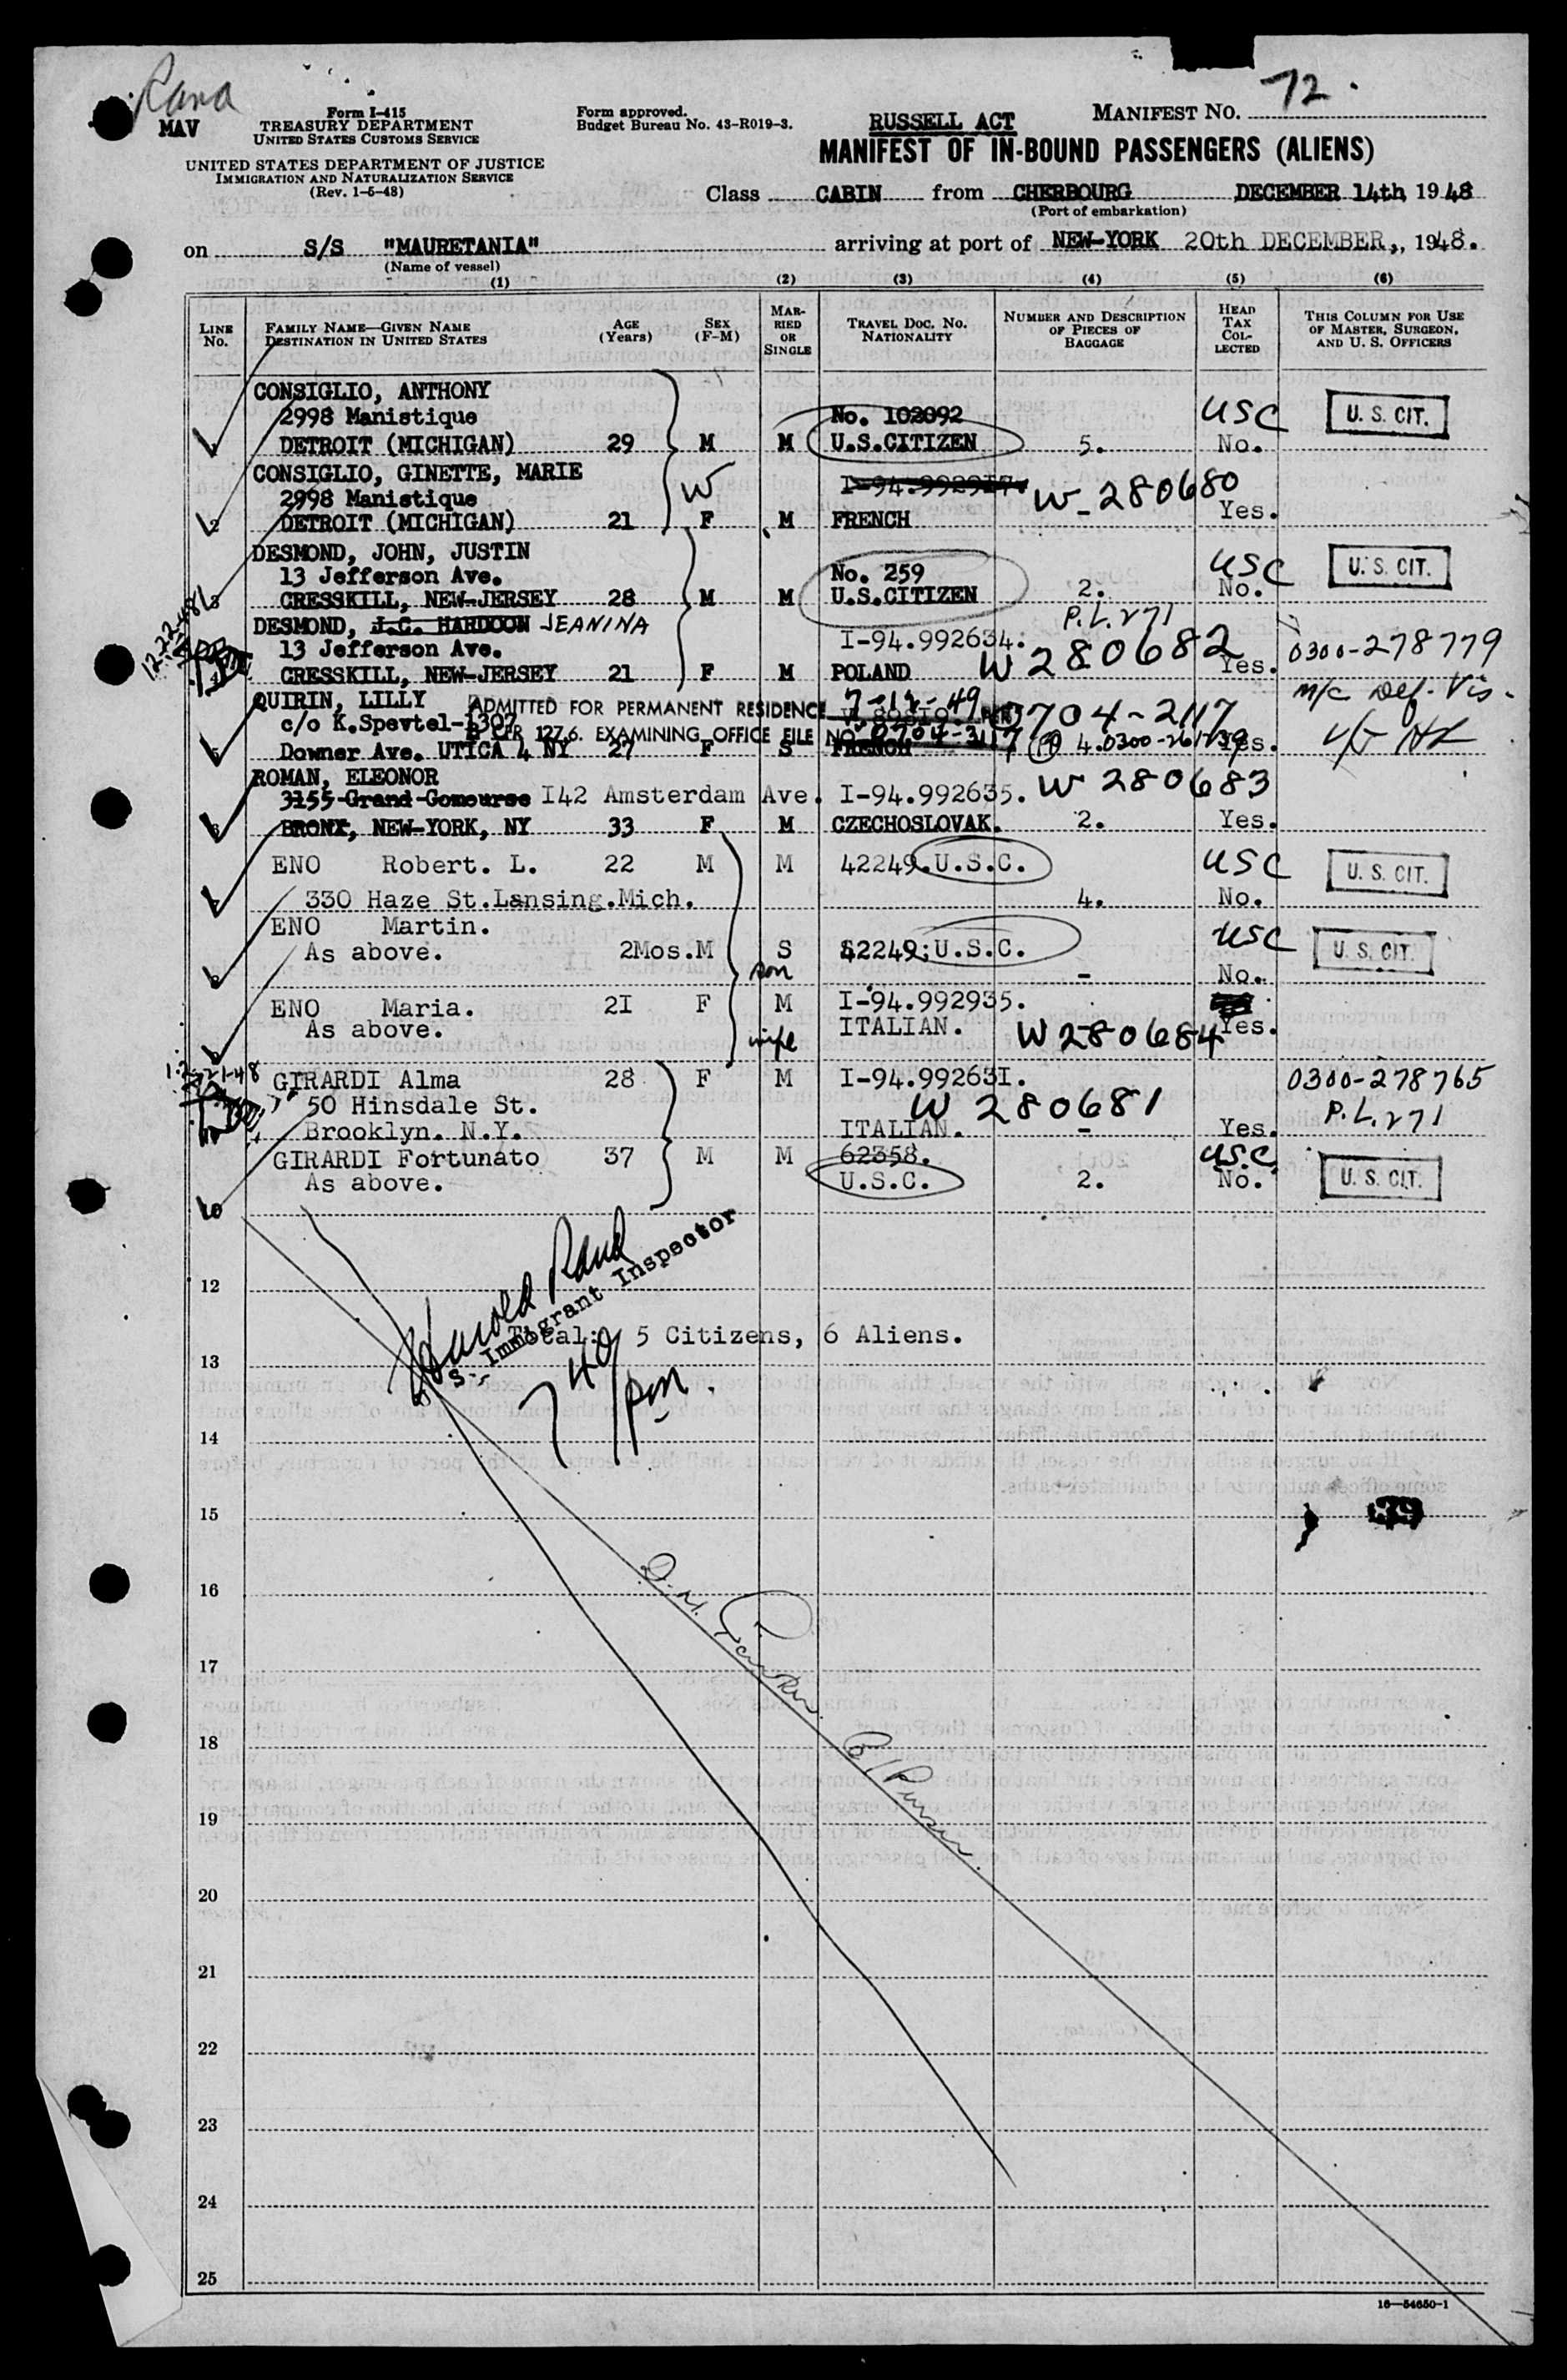 Rand
MAV
Form I-415
TREASURY DEPARTMENT
UNITED STATES CUSTOMS SERVICE
UNITED STATES DEPARTMENT OF JUSTICE
IMMIGRATION AND NATURALIZATION SERVICE
(Rev. 1-5-48)
Form approved.
Budget Bureau No. 43-R019-3.
RUSSELL ACT
MANIFEST NO. 72.
MANIFEST OF IN-BOUND PASSENGERS (ALIENS)
Class CABIN from CHERBOURG DECEMBER 14th, 1948
(Port of embarkation)
on S/S "MAURETANIA" arriving at port of NEW-YORK 20th DECEMBER,, 1948.
(Name of vessel)
(1) (2) (3) (4) (5) (6)
LINE No.
FAMILY NAME—GIVEN NAME
DESTINATION IN UNITED STATES
AGE (Years)
SEX (F-M)
MARRIED OR SINGLE
TRAVEL DOC. NO. NATIONALITY
NUMBER AND DESCRIPTION OF PIECES OF BAGGAGE
HEAD TAX COLLECTED
THIS COLUMN FOR USE OF MASTER, SURGEON, AND U. S. OFFICERS
CONSIGLIO, ANTHONY
2998 Manistique No. 102092 USC U. S. CIT.
1 DETROIT (MICHIGAN) 29 M M U.S.CITIZEN 5. No.
CONSIGLIO, GINETTE, MARIE W
2998 Manistique W-280680
2 DETROIT (MICHIGAN) 21 F M FRENCH Yes.
DESMOND, JOHN, JUSTIN
13 Jefferson Ave. No. 259 USC U. S. CIT.
3 CRESSKILL, NEW-JERSEY 28 M M U.S.CITIZEN 2. No.
12-22-48
DESMOND, J.C. HARDOON JEANINA P.L. 271
13 Jefferson Ave. I-94.992634. W 280682 0300-278779
4 CRESSKILL, NEW-JERSEY 21 F M POLAND Yes.
QUIRIN, LILLY ADMITTED FOR PERMANENT RESIDENCE 7-12-49 0704-2117 m/c Def. Vis.
c/o K.Spevtel-1307 8 CFR 127.6. EXAMINING OFFICE FILE NO.
5 Downer Ave. UTICA 4 NY 27 F S FRENCH 4. Yes.
ROMAN, ELEONOR
3155 Grand Gomourse I42 Amsterdam Ave. I-94.992635. W 280683
6 BRONX, NEW-YORK, NY 33 F M CZECHOSLOVAK. 2. Yes.
ENO Robert. L. 22 M M 42249.U.S.C. USC U. S. CIT.
7 330 Haze St.Lansing.Mich. 4. No.
ENO Martin. USC U. S. CIT.
As above. 2Mos. M S 42249;U.S.C.
8 son - No.
ENO Maria. 2I F M I-94.992935.
As above. ITALIAN. W 280684 Yes.
9 wife
12-21-48
GIRARDI Alma 28 F M I-94.99263I. 0300-278765
50 Hinsdale St. W 280681 P.L. 271
Brooklyn. N.Y. ITALIAN. - Yes.
GIRARDI Fortunato 37 M M 62358. U.S.C.
As above. U.S.C. 2. No. U. S. CIT.
10
12
Harold Rand
Immigrant Inspector
Total: 5 Citizens, 6 Aliens.
13
7 40/pm.
14
15
39
16
17
18
B/Purser.
19
20
21
22
23
24
25
16—54650-1